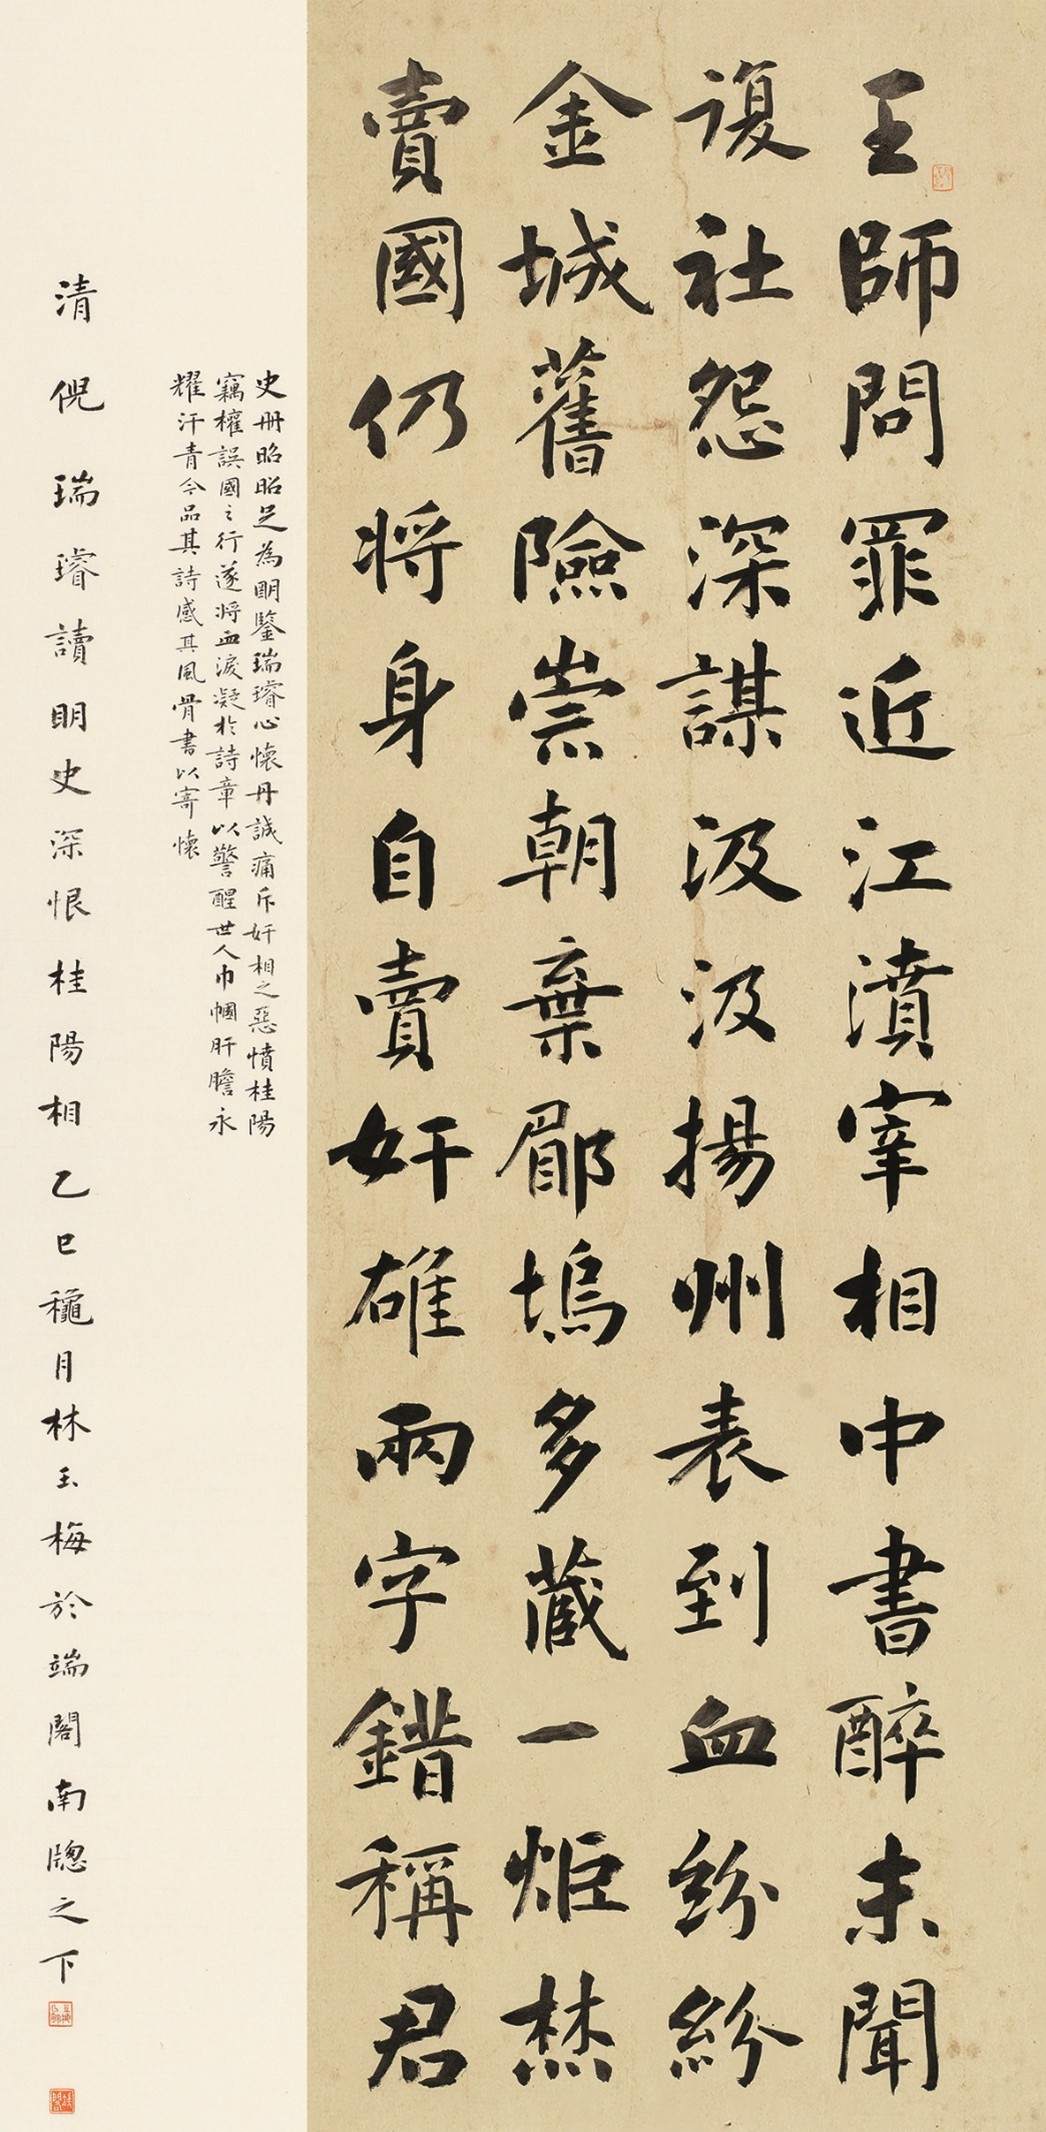 王師問罪近江濆宰相中書醉未聞
復社怨深謀汲汲揚州表到血紛紛
金城舊險崇朝棄郿塢多藏一炬焚
賣國仍将身自賣奸雄兩字錯稱君
史册昭昭足為明鑒瑞璿心懷丹誠痛斥奸相之惡憤桂陽
竊權誤國之行遂将血淚凝於詩章以警醒世人巾幗肝膽永
耀汗青今品其詩感其風骨書以寄懷
清倪瑞璿讀明史深恨桂陽相乙巳龝月林玉梅於端閣南牕之下